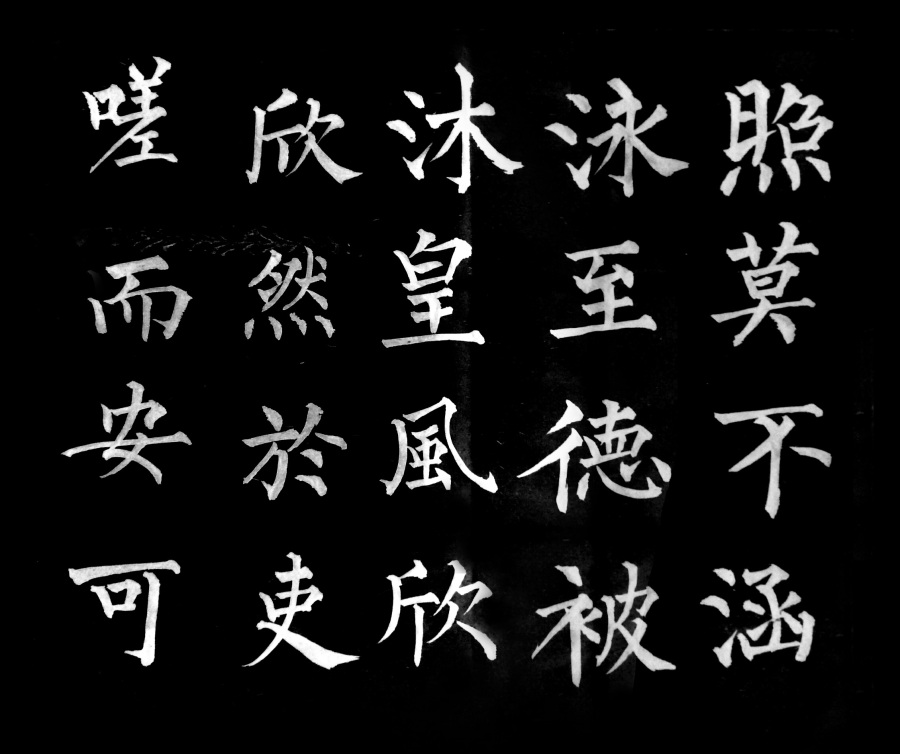 照莫不涵
泳至德被
沐皇風欣
欣然於吏
嗟而安可